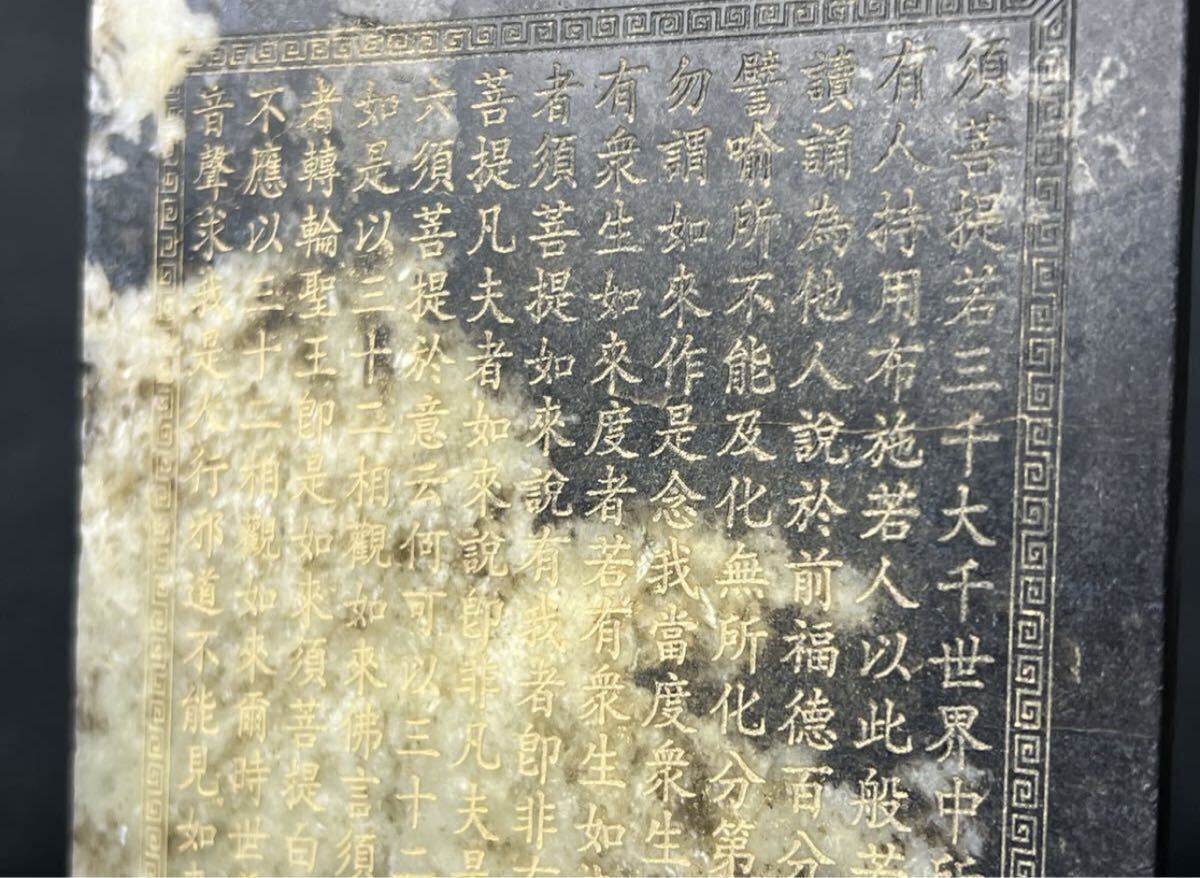 須菩提若三千大千世界中所
有人持用布施若人以此般若
讀誦為他人說於前福德百分
譬喻所不能及化無所化分第
勿謂如來作是念我當度眾生
有眾生如來度者若有眾生如
者須菩提如來說有我者即非有
菩提凡夫者如來說即非凡夫是
六須菩提於意云何可以三十二
如是以三十二相觀如來佛言須
者轉輪聖王即是如來須菩提白
不應以三十二相觀如來爾時世
音聲求我是人行邪道不能見如